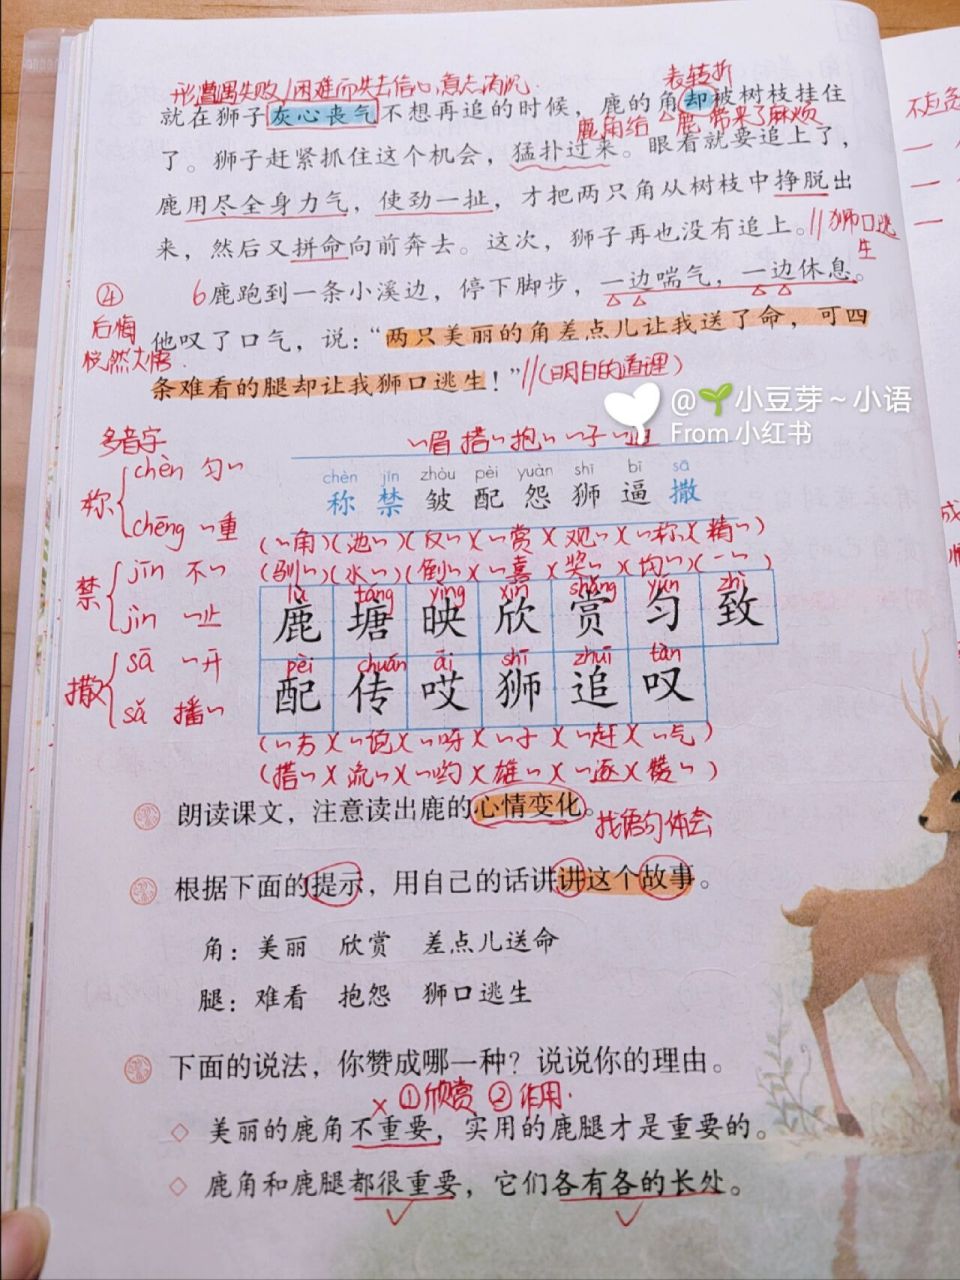 形遭遇失败/困难而失去信心,意志消沉. 表转折
就在狮子灰心丧气不想再追的时候，鹿的角却被树枝挂住
鹿角给鹿带来了麻烦
不应
了。狮子赶紧抓住这个机会，猛扑过来。眼看就要追上了，
鹿用尽全身力气，使劲一扯，才把两只角从树枝中挣脱出
来，然后又拼命向前奔去。这次，狮子再也没有追上。//狮口逃生
④ 6鹿跑到一条小溪边，停下脚步，一边喘气，一边休息。
后悔
他叹了口气，说：“两只美丽的角差点儿让我送了命，可四
恍然大悟.
条难看的腿却让我狮口逃生！”//(明白的道理)
@🌱小豆芽～小语
From 小红书
多音字
称 chèn 匀~
chēng ~重
禁 jīn 不~
jìn ~止
撒 sā ~开
sǎ 播~
~眉 搭~ 抱~ ~子 ~迫
chèn jīn zhòu pèi yuàn shī bī sā
称 禁 皱 配 怨 狮 逼 撒
(~角)(池~)(反~)(~赏)(观~)(~称)(精~)
(驯~)(水~)(倒~)(~喜)(奖~)(均~)(~一)
lù táng yìng xīn shǎng yún zhì
鹿 塘 映 欣 赏 匀 致
pèi chuán āi shī zhuī tàn
配 传 哎 狮 追 叹
(~方)(~说)(~呀)(~子)(~赶)(~气)
(搭~)(流~)(~哟)(雄~)(~逐)(赞~)
朗读课文，注意读出鹿的心情变化。
找语句体会
根据下面的提示，用自己的话讲讲这个故事。
角：美丽 欣赏 差点儿送命
腿：难看 抱怨 狮口逃生
下面的说法，你赞成哪一种？说说你的理由。
×①欣赏 ②作用.
◇ 美丽的鹿角不重要，实用的鹿腿才是重要的。
◇ 鹿角和鹿腿都很重要，它们各有各的长处。